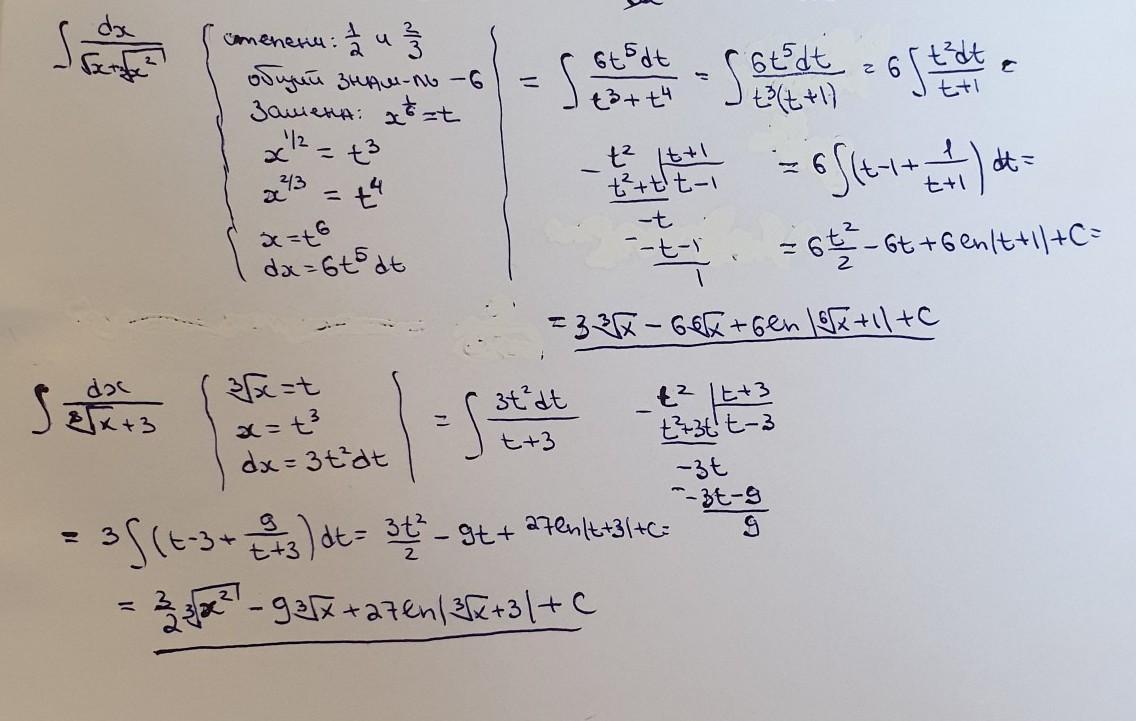 ∫ dx/(√x+∛x²) | степени: 1/2 и 2/3
общий знам-ль – 6
Замена: x^(1/6) = t
x^(1/2) = t³
x^(2/3) = t⁴
x = t⁶
dx = 6t⁵dt | = ∫ 6t⁵dt/(t³+t⁴) = ∫ 6t⁵dt/(t³(t+1)) = 6∫ t²dt/(t+1) =
– t² | t+1
t²+t | t–1
–t
– –t–1
1
= 6∫(t–1+ 1/(t+1)) dt =
= 6 t²/2 – 6t + 6ln|t+1| + C =
= 3∛x – 6⁶√x + 6ln|⁶√x+1| + C
∫ dx/(∛x+3) | ∛x = t
x = t³
dx = 3t²dt | = ∫ 3t²dt/(t+3)
– t² | t+3
t²+3t | t–3
–3t
– –3t–9
9
= 3∫(t–3+ 9/(t+3)) dt = 3t²/2 – 9t + 27ln|t+3|+C=
= 3/2 ∛x² – 9∛x + 27ln|∛x+3| + C